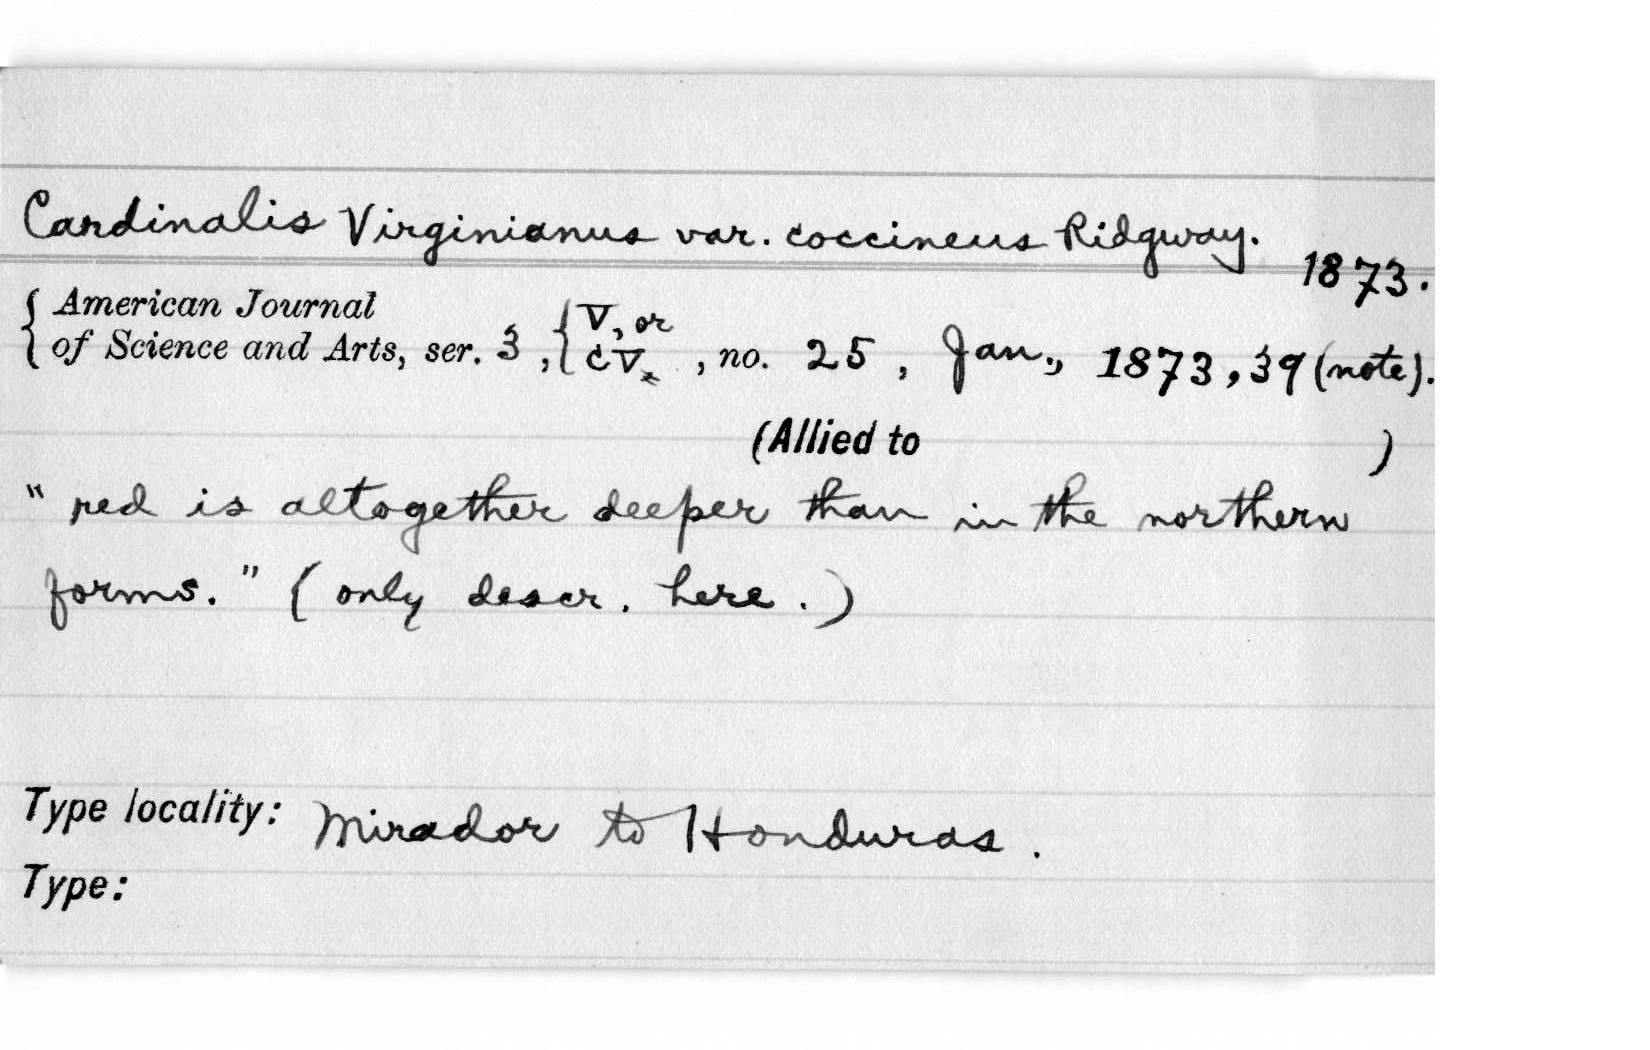 Cardinalis Virginianus var. coccineus Ridgway.
1873.
{ American Journal
of Science and Arts, ser. 3, { V, or
CV. , no. 25, Jan., 1873, 39 (note).
(Allied to )
" red is altogether deeper than in the northern
forms." (only descr. here.)
Type locality: Mirador to Honduras.
Type: